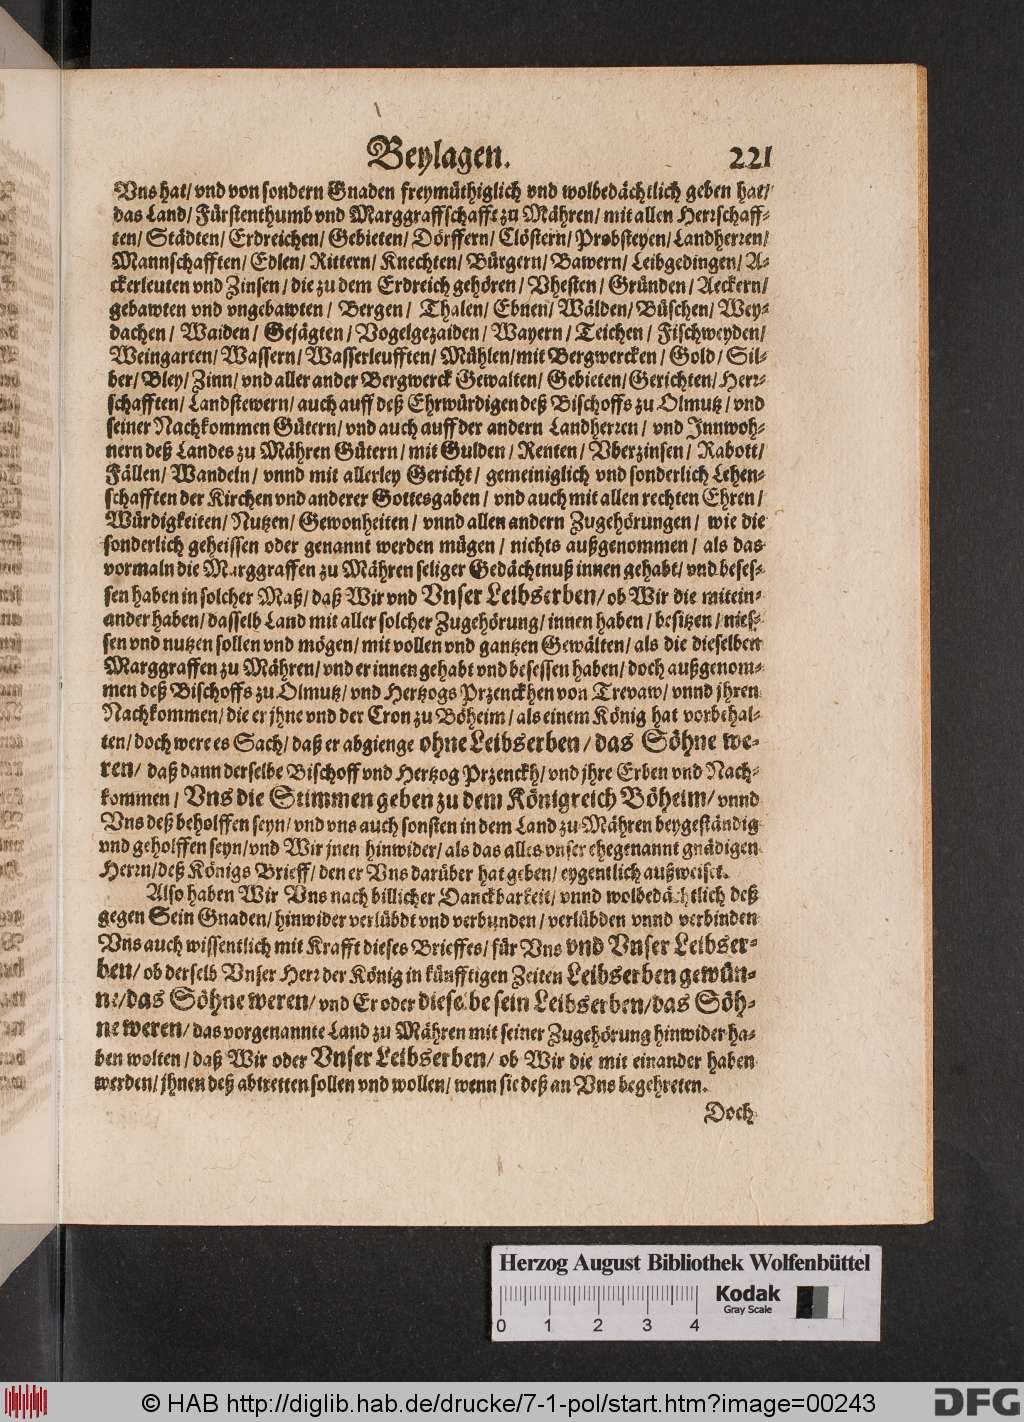 Beylagen. 221
Vns hat/ vnd von sondern Gnaden freymüthiglich vnd wolbedächtlich geben hat/
das Land/ Fürstenthumb vnd Marggraffschafft zu Mähren/ mit allen Herrschaff-
ten/ Städten/ Erdreichen/ Gebieten/ Dörffern/ Clöstern/ Probsteyen/ Landherren/
Mannschafften/ Edlen/ Rittern/ Knechten/ Bürgern/ Bawern/ Leibgedingen/ A-
ckerleuten vnd Zinsen/ die zu dem Erdreich gehören/ Vhesten/ Gründen/ Aeckern/
gebawten vnd vngebawten/ Bergen/ Thalen/ Ebnen/ Wälden/ Büschen/ Wey-
dachen/ Waiden/ Gejägten/ Vogelgezaiden/ Wayern/ Teichen/ Fischweyden/
Weingarten/ Wassern/ Wasserleufften/ Mühlen/ mit Bergwercken/ Gold/ Sil-
ber/ Bley/ Zinn/ vnd aller ander Bergwerck Gewalten/ Gebieten/ Gerichten/ Herr-
schafften/ Landstewern/ auch auff deß Ehrwürdigen deß Bischoffs zu Olmutz/ vnd
seiner Nachkommen Gütern/ vnd auch auff der andern Landherren/ vnd Innwoh-
nern deß Landes zu Mähren Gütern/ mit Gulden/ Renten/ Vberzinsen/ Rabott/
Fällen/ Wandeln/ vnnd mit allerley Gericht/ gemeiniglich vnd sonderlich Lehen-
schafften der Kirchen vnd anderer Gottesgaben/ vnd auch mit allen rechten Ehren/
Würdigkeiten/ Nutzen/ Gewonheiten/ vnnd allen andern Zugehörungen/ wie die
sonderlich geheissen oder genannt werden mügen/ nichts außgenommen/ als das
vormaln die Marggraffen zu Mähren seliger Gedächtnuß innen gehabt/ vnd beses-
sen haben in solcher Maß/ daß Wir vnd Vnser Leibserben/ ob Wir die mitein-
ander haben/ dasselb Land mit aller solcher Zugehörung/ innen haben/ besitzen/ nies-
sen vnd nutzen sollen vnd mögen/ mit vollen vnd gantzen Gewälten/ als die dieselben
Marggraffen zu Mähren/ vnd er innen gehabt vnd besessen haben/ doch außgenom-
men deß Bischoffs zu Olmutz/ vnd Hertzogs Przenckhen von Trevaw/ vnnd jhren
Nachkommen/ die er jhne vnd der Cron zu Böheim/ als einem König hat vorbehal-
ten/ doch were es Sach/ daß er abgienge ohne Leibserben/ das Söhne we-
ren/ daß dann derselbe Bischoff vnd Hertzog Przenckh/ vnd jhre Erben vnd Nach-
kommen/ Vns die Stimmen geben zu dem Königreich Böheim/ vnnd
Vns deß beholffen seyn/ vnd vns auch sonsten in dem Land zu Mähren beygeständig
vnd geholffen seyn/ vnd Wir jnen hinwider/ als das alles vnser ehegenannt gnädigen
Herrn/ deß Königs Brieff/ den er Vns darüber hat geben/ eygentlich außweiset.
Also haben Wir Vns nach billicher Danckbarkeit/ vnnd wolbedächtlich deß
gegen Sein Gnaden/ hinwider verlübdt vnd verbunden/ verlübden vnnd verbinden
Vns auch wissentlich mit Krafft dieses Brieffes/ für Vns vnd Vnser Leibser-
ben/ ob derselb Vnser Herr der König in künfftigen Zeiten Leibserben gewün-
ne/ das Söhne weren/ vnd Er oder dieselbe sein Leibserben/ das Söh-
ne weren/ das vorgenannte Land zu Mähren mit seiner Zugehörung hinwider ha-
ben wolten/ daß Wir oder Vnser Leibserben/ ob Wir die mit einander haben
werden/ jhnen deß abtretten sollen vnd wollen/ wenn sie deß an Vns begehreten.
Doch
Herzog August Bibliothek Wolfenbüttel
0 1 2 3 4
Kodak
Gray Scale
© HAB http://diglib.hab.de/drucke/7-1-pol/start.htm?image=00243
DFG